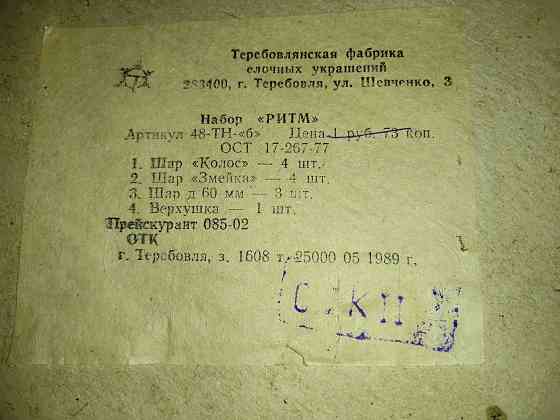 Теребовлянская фабрика
елочных украшений
283400, г. Теребовля, ул. Шевченко, 3
Набор «РИТМ»
Артикул 48-ТН-«б» Цена 1 руб. 73 коп.
ОСТ 17-267-77
1. Шар «Колос» — 4 шт.
2. Шар «Змейка» — 4 шт.
3. Шар д 60 мм — 3 шт.
4. Верхушка — 1 шт.
Прейскурант 085-02
ОТК
г. Теребовля, з. 1608 т. 25000 05 1989 г.